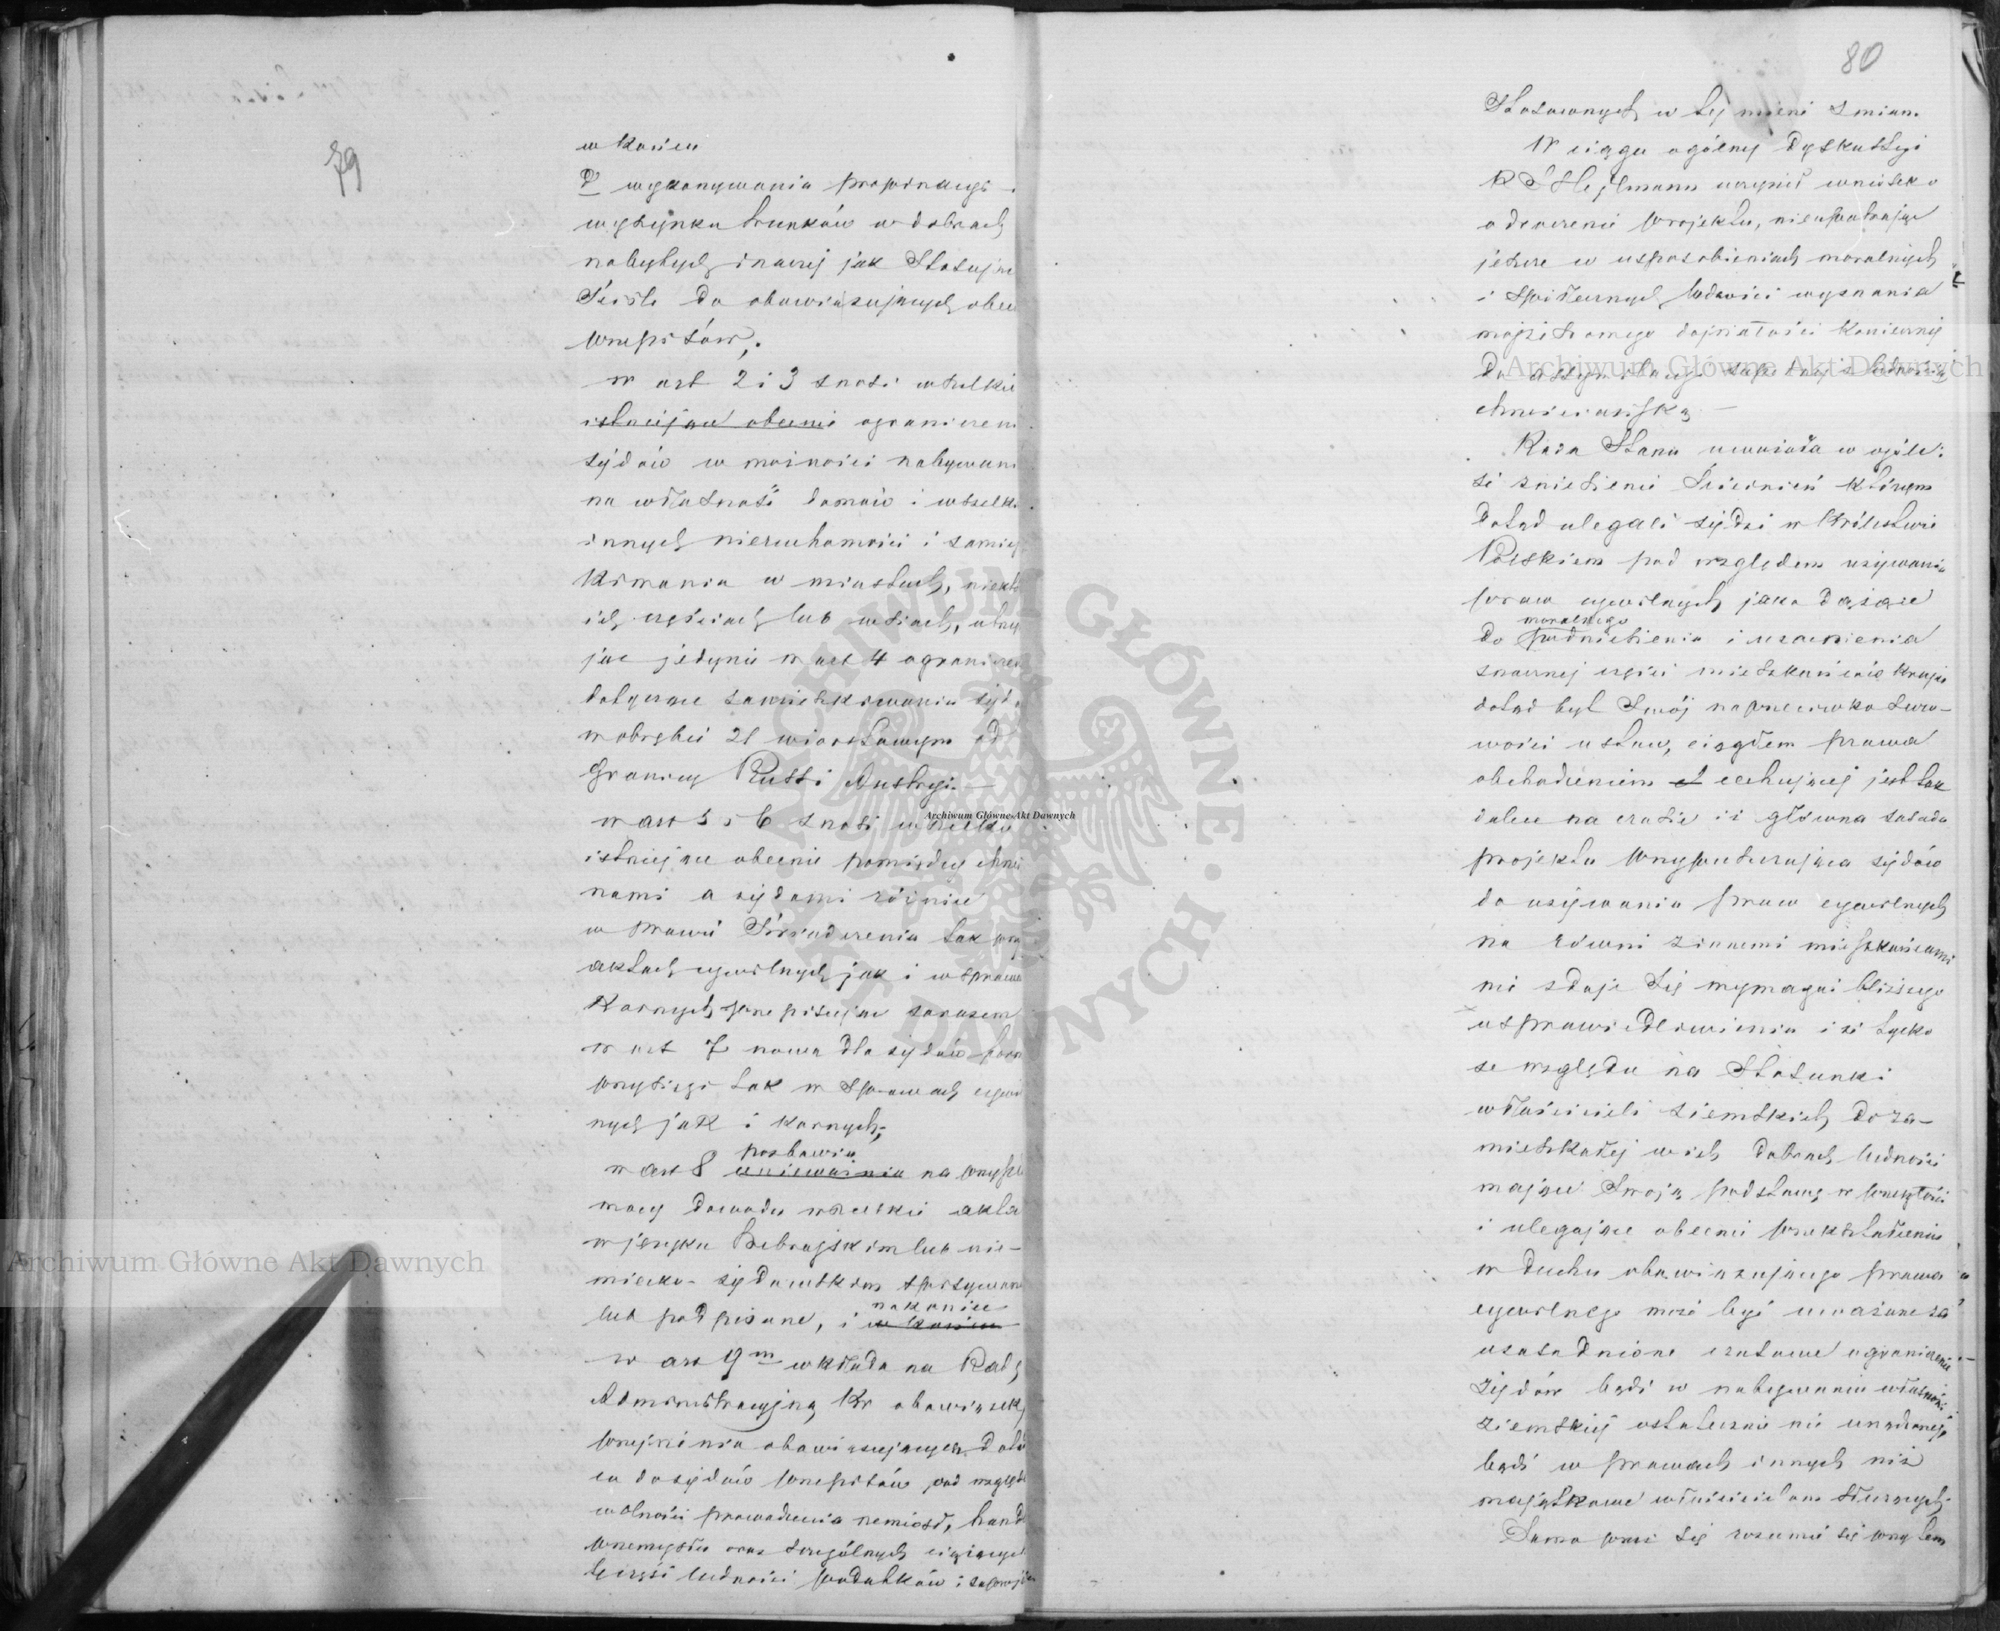 79
w końcu
d wykonywania propinacyi
wyszynku trunków w dobrach
nabytych inaczej jak stosując
ściśle do obowiązujących obec
przepisów;
w art 2 i 3 znosi wszelkie
istniejące obecnie ograniczen
żydów w możności nabywan
na własność domów i wszelk
innych nieruchomości i zamiesz
kiwania w miastach, niekt
ich częściach lub wsiach, utrzy
jąc jedynie w art 4 ograniczen
dotyczące zamieszkiwania żyd
w obrębie 21 wiorstowym od
granicy Russi Austryi.—
w art 5 i 6 znosi wszelkie
istniejące obecnie pomiędzy chrze
nami a żydami różnice
w prawie świadczenia tak przy
aktach cywilnych jak i w sprawa
karnych przepisując zarazem
w art 7 nowa dla żydów form
przysięgi tak w sprawach cywil
nych jak i karnych;
pozbawia
w art 8 unieważnia na przysz
mocy dowodu wszelkie akta
w języku hebrajskim lub nie-
miecko-żydowskim spisywane
nakoniec
lub podpisane, i w końcu
w art 9m wkłada na Radę
Administracyjną Kr obowiązek
przejrzenia obowiązujących doty
co do żydów przepisów pod względ
wolności prowadzenia rzemiosł, hand
przemysłu oraz szczególnych ciążących
tę część ludności podatków i
80
stosowanych w tej mierze zmian.
W ciągu ogólnej dyskussyi
R S Hejlmann uczynił wniosek o
odroczenie projektu, nieupatrując
jeszcze w usposobieniach moralnych
i społecznych ludności wyznania
mojżeszowego dojrzałości koniecznej
do assymilacyi zupełnej z ludnością
chrześciańską.—
Rada Stanu uważała w ogóle:
że zniesienie ścieśnień którym
dotąd ulegali żydzi w Królestwie
Polskiem pod względem używania
praw cywilnych jako dążące
moralnego
do podniesienia i uzacnienia
znacznej części mieszkańców kraju
dotąd był swój naprzeciwko suro-
wości ustaw, ciągłem prawa
obchodzeniem cechującej jest tak
dalece na czasie iż główna zasada
projektu przypuszczająca żydów
do używania praw cywilnych
na równi z innemi mieszkańcami
nie zdaje się wymagać bliższego
usprawiedliwienia i że tylko
ze względu na stosunki
właścicieli ziemskich do za-
mieszkałej w ich dobrach ludności
mające swoją podstawę w przeszłości
i ulegające obecnie przekształceniu
w duchu obowiązującego prawa
cywilnego może być uważane za
uzasadnione czasowe ograniczenie
żydów bądź w nabywaniu własności
ziemskiej ostatecznie nie urządzonej
bądź w prawach innych niż
majątkowe właścicielom służących.
Samo przez się rozumie się przytem